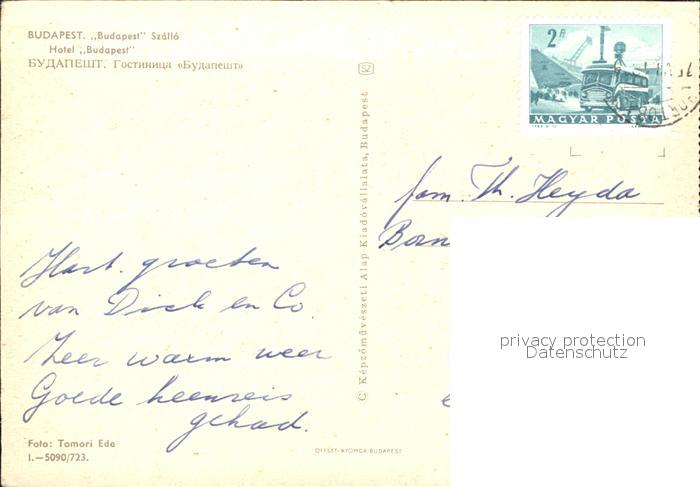 BUDAPEST. „Budapest" Szálló
Hotel „Budapest"
БУДАПЕШТ. Гостиница «Будапешт»
2 Ft
MAGYAR POSTA
fam. Th. Heyda
Born
Hart. groeten
van Dick en Co.
Zeer warm weer
Goede heenreis
gehad.
© Képzőművészeti Alap Kiadóvállalata, Budapest
privacy protection
Datenschutz
Foto: Tomori Ede
I.—5090/723.
OFFSET-NYOMDA, BUDAPEST